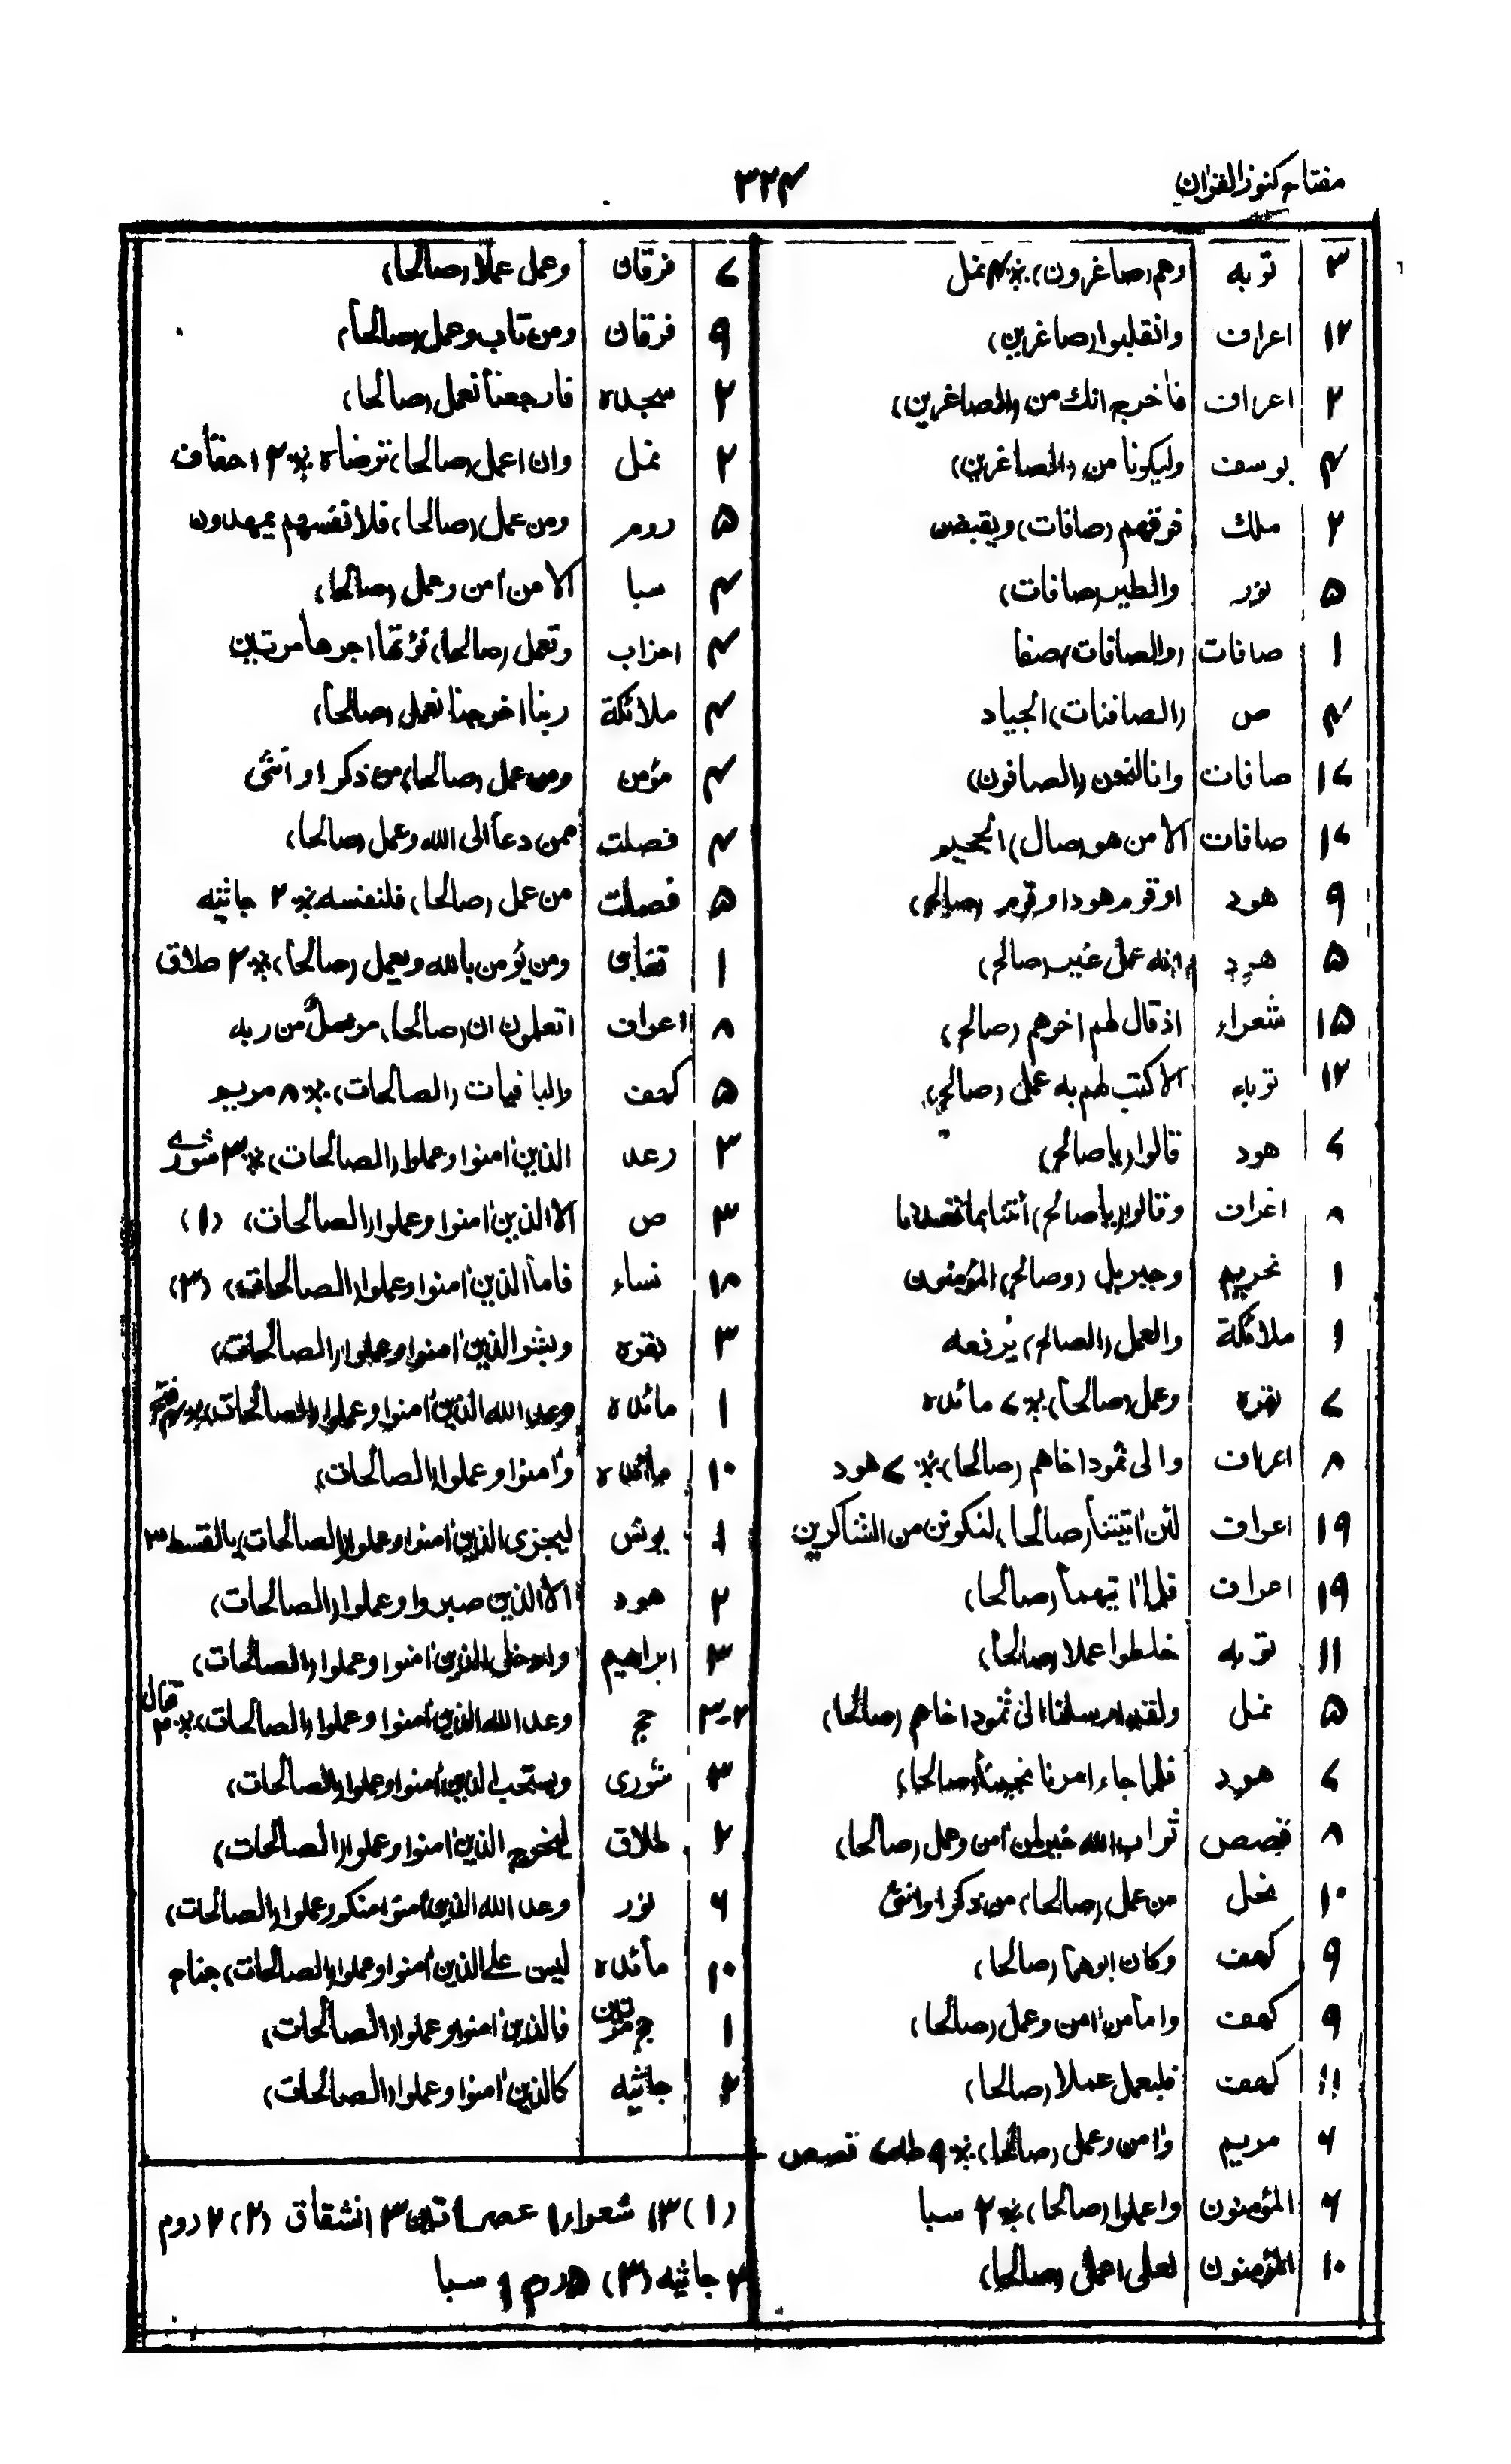 مفتاح كنوز القرآن
۳۲۴
۳ توبه وهم (صاغرون) ٪ ۳ نمل
۱۲ اعراف وانقلبوا (صاغرين)
۲ اعراف فاخرج انك من (الصاغرين)
۴ يوسف وليكونا من (الصاغرين)
۲ ملك فوقهم (صافات) ويقبضن
۵ نور والطير (صافات)
۱ صافات (والصافات) صفا
۴ ص (الصافنات) الجياد
۱۷ صافات وانا لنحن (الصافون)
۱۷ صافات الا من هو (صال) الجحيم
۹ هود او قوم هود او قوم (صالح)
۵ هود انه عمل غير (صالح)
۱۵ شعراء اذ قال لهم اخوهم (صالح)
۱۲ توبه الا كتب لهم به عمل (صالح)
۷ هود قالوا (يا صالح)
۸ اعراف وقالوا (يا صالح) أئتنا بما تعدنا
۱ تحريم وجبريل (وصالح) المؤمنون
۱ ملائكة والعمل (الصالح) يرفعه
۷ بقره وعمل (صالحا) ٪ ۷ مائده
۸ اعراف والى ثمود اخاهم (صالحا) ٪ ۷ هود
۱۹ اعراف لئن اٰتيتنا (صالحا) لنكونن من الشاكرين
۱۹ اعراف فلما اٰتيهما (صالحا)
۱۱ توبه خلطوا عملا (صالحا)
۵ نمل ولقد ارسلنا الى ثمود اخاهم (صالحا)
۷ هود فلما جاء امرنا نجينا (صالحا)
۸ قصص ثواب الله خير لمن اٰمن وعمل (صالحا)
۱۰ نحل من عمل (صالحا) من ذكر او انثى
۹ كهف وكان ابوهما (صالحا)
۹ كهف واما من اٰمن وعمل (صالحا)
۱۱ كهف فليعمل عملا (صالحا)
۶ مريم واٰمن وعمل (صالحا) ٪ ۹ طه ۷ قصص
۶ المؤمنون واعملوا (صالحا) ٪ ۲ سبا
۱۰ المؤمنون لعلى اعمل (صالحا)
۷ فرقان وعمل عملا (صالحا)
۹ فرقان ومن تاب وعمل (صالحا)
۲ سجده فارجعنا نعمل (صالحا)
۲ نمل وان اعمل (صالحا) ترضاه ٪ ۲ احقاف
۵ روم ومن عمل (صالحا) فلانفسهم يمهدون
۴ سبا الا من اٰمن وعمل (صالحا)
۴ احزاب وتعمل (صالحا) نؤتها اجرها مرتين
۴ ملائكة ربنا اخرجنا نعمل (صالحا)
۴ مؤمن ومن عمل (صالحا) من ذكر او أنثى
۴ فصلت ممن دعا الى الله وعمل (صالحا)
۵ فصلت من عمل (صالحا) فلنفسه ٪ ۲ جاثيه
۱ تغابن ومن يؤمن بالله ويعمل (صالحا) ٪ ۲ طلاق
۸ اعراف اتعلمون ان (صالحا) مرسل من ربه
۵ كهف والباقيات (الصالحات) ٪ ۸ مريم
۳ رعد الذين اٰمنوا وعملوا (الصالحات) ٪ ۳ شورى
۳ ص الا الذين اٰمنوا وعملوا (الصالحات) (۱)
۱۸ نساء فاما الذين اٰمنوا وعملوا (الصالحات) (۲)
۳ بقره وبشر الذين اٰمنوا وعملوا (الصالحات)
۱ مائده وعد الله الذين اٰمنوا وعملوا (الصالحات) ٪ ۴ فتح
۱۰ مائده واٰمنوا وعملوا (الصالحات)
۱ يونس ليجزى الذين اٰمنوا وعملوا (الصالحات) بالقسط ۳
۲ هود الا الذين صبروا وعملوا (الصالحات)
۳ ابراهيم وادخل الذين اٰمنوا وعملوا (الصالحات)
۲-۳ حج وعد الله الذين اٰمنوا وعملوا (الصالحات) ٪ ۲ قتال
۳ شورى ويستجب الذين اٰمنوا وعملوا (الصالحات)
۲ طلاق ليخرج الذين اٰمنوا وعملوا (الصالحات)
۶ نور وعد الله الذين اٰمنوا منكم وعملوا (الصالحات)
۱۰ مائده ليس على الذين اٰمنوا وعملوا (الصالحات) جناح
۱ حج مرتين فالذين اٰمنوا وعملوا (الصالحات)
۲ جاثيه كالذين اٰمنوا وعملوا (الصالحات)
(۱) ۱۳ شعراء ۱ عصر ۱ تين ۳ انشقاق (۲) ۲ روم
۴ جاثيه (۳) ۵ روم ۱ سبا